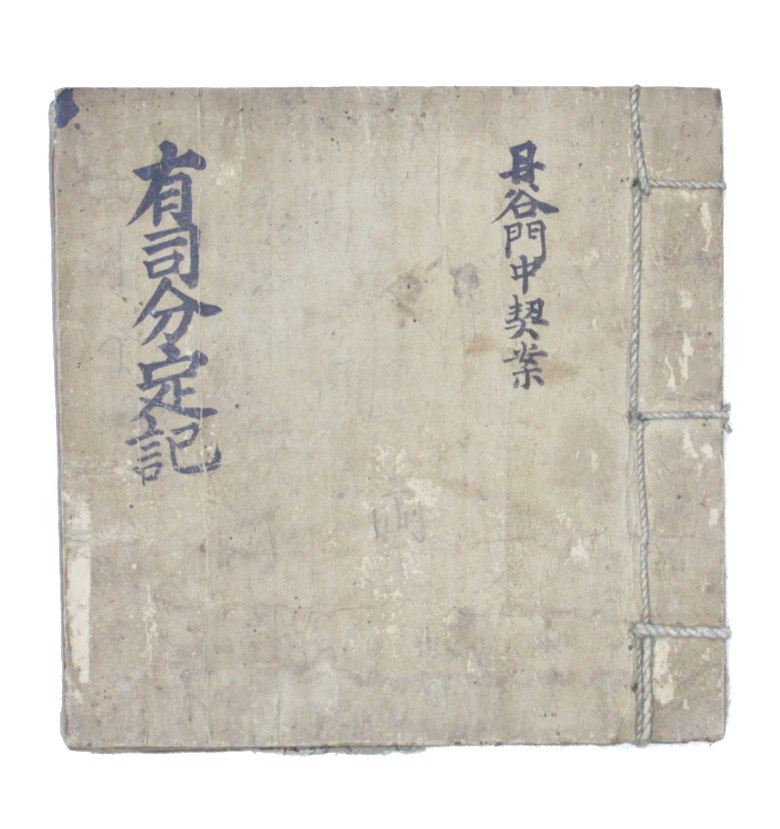 具谷門中契案
有司分定記